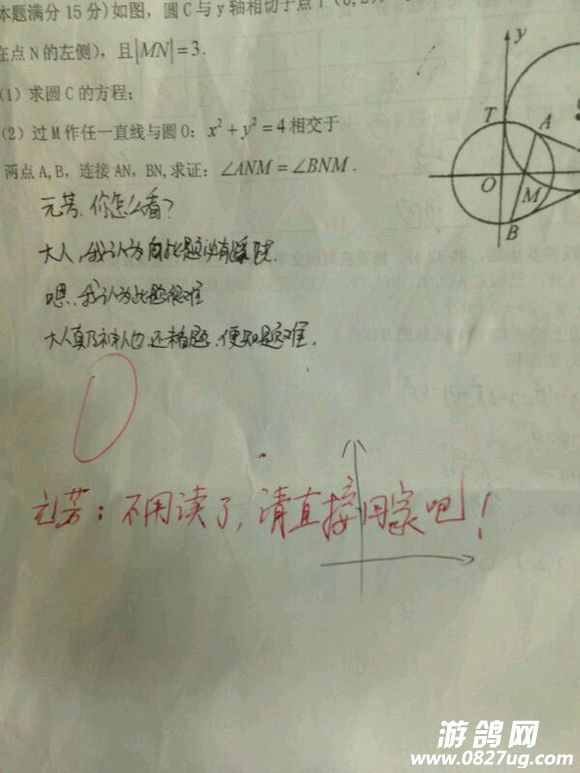 本题满分 15 分)如图，圆 C 与 y 轴相切于点 T (0,2)
在点 N 的左侧)，且|MN|=3.
(1) 求圆 C 的方程；
(2) 过 M 作任一直线与圆 O：x²+y²=4 相交于
两点 A,B，连接 AN，BN,求证：∠ANM=∠BNM .
y
T
A
O
M
B
元芳，你怎么看？
大人，我认为此题必有蹊跷.
嗯，我认为此题很难
大人真乃神人也，还未看题，便知题难.
0
元芳：不用读了，请直接回家吧！
游鸽网
www.0827ug.com